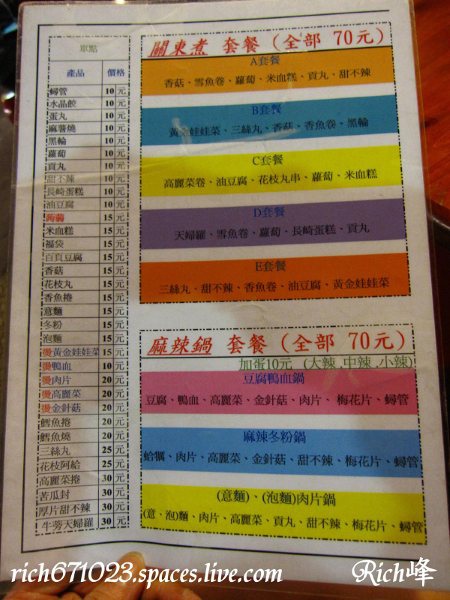 單點
產品 價格
蟳管 10 元
水晶餃 10 元
蛋丸 10 元
麻薯燒 10 元
黑輪 10 元
蘿蔔 10 元
貢丸 10 元
甜不辣 10 元
長崎蛋糕 10 元
油豆腐 10 元
蒟蒻 15 元
米血糕 15 元
福袋 15 元
百頁豆腐 15 元
香菇 15 元
花枝丸 15 元
香魚捲 15 元
意麵 15 元
冬粉 15 元
泡麵 15 元
燙黃金娃娃菜 15 元
燙鴨血 10 元
燙肉片 20 元
燙高麗菜 20 元
燙金針菇 20 元
鱈魚捲 20 元
鱈魚燒 20 元
三絲丸 25 元
花枝阿給 25 元
高麗菜捲 30 元
苦瓜封 30 元
厚片甜不辣 30 元
牛蒡天婦羅 30 元
關東煮 套餐 (全部 70元)
A套餐
香菇、雪魚卷、蘿蔔、米血糕、貢丸、甜不辣
B套餐
黃金娃娃菜、三絲丸、香菇、香魚卷、黑輪
C套餐
高麗菜卷、油豆腐、花枝丸串、蘿蔔、米血糕
D套餐
天婦羅、雪魚卷、蘿蔔、長崎蛋糕、貢丸
E套餐
三絲丸、甜不辣、香魚卷、油豆腐、黃金娃娃菜
麻辣鍋 套餐 (全部 70元)
加蛋10元 (大辣.中辣.小辣)
豆腐鴨血鍋
豆腐、鴨血、高麗菜、金針菇、肉片、梅花片、蟳管
麻辣冬粉鍋
蛤蠣、肉片、高麗菜、金針菇、甜不辣、梅花片、蟳管
(意麵)、(泡麵)肉片鍋
(意、泡)麵、肉片、高麗菜、貢丸、甜不辣、梅花片、蟳管
rich671023.spaces.live.com
Rich峰